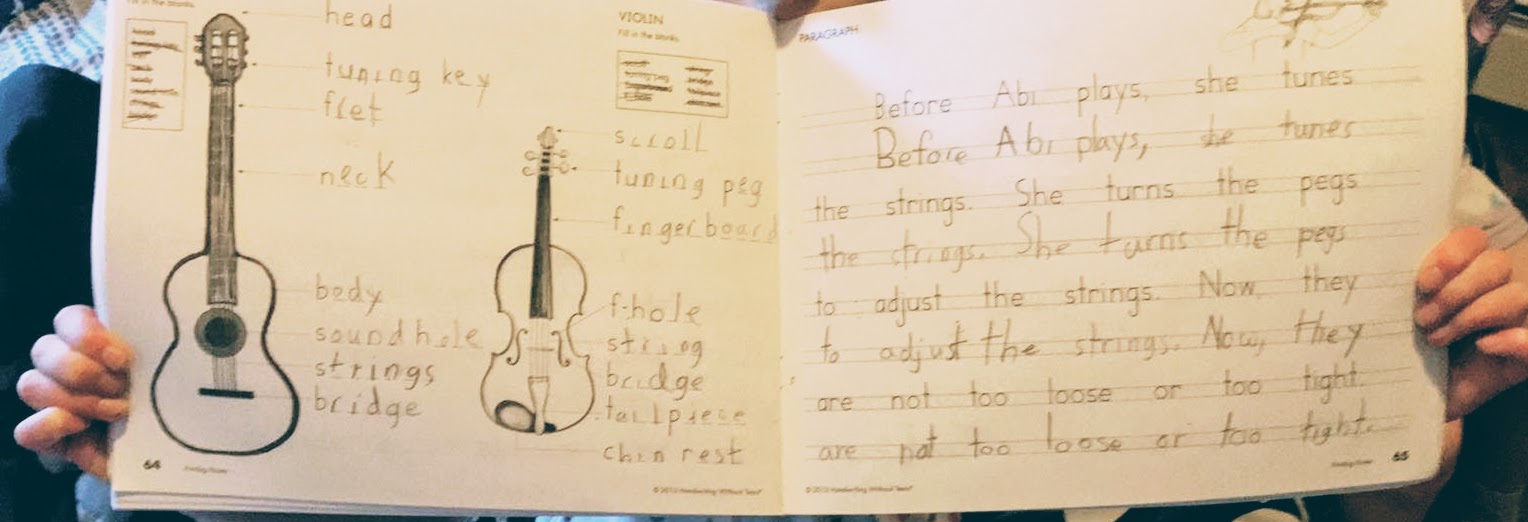 Fill in the blanks.
head
tuning key
fret
neck
body
sound hole
strings
bridge
64
Printing Power
VIOLIN
Fill in the blanks.
scroll
tuning peg
fingerboard
f-hole
string
bridge
tailpiece
chin rest
© 2013 Handwriting Without Tears®
PARAGRAPH
Before Abi plays, she tunes
Before Abi plays, she tunes
the strings. She turns the pegs
the strings. She turns the pegs
to adjust the strings. Now, they
to adjust the strings. Now, they
are not too loose or too tight.
are not too loose or too tight.
© 2013 Handwriting Without Tears®
Printing Power
65